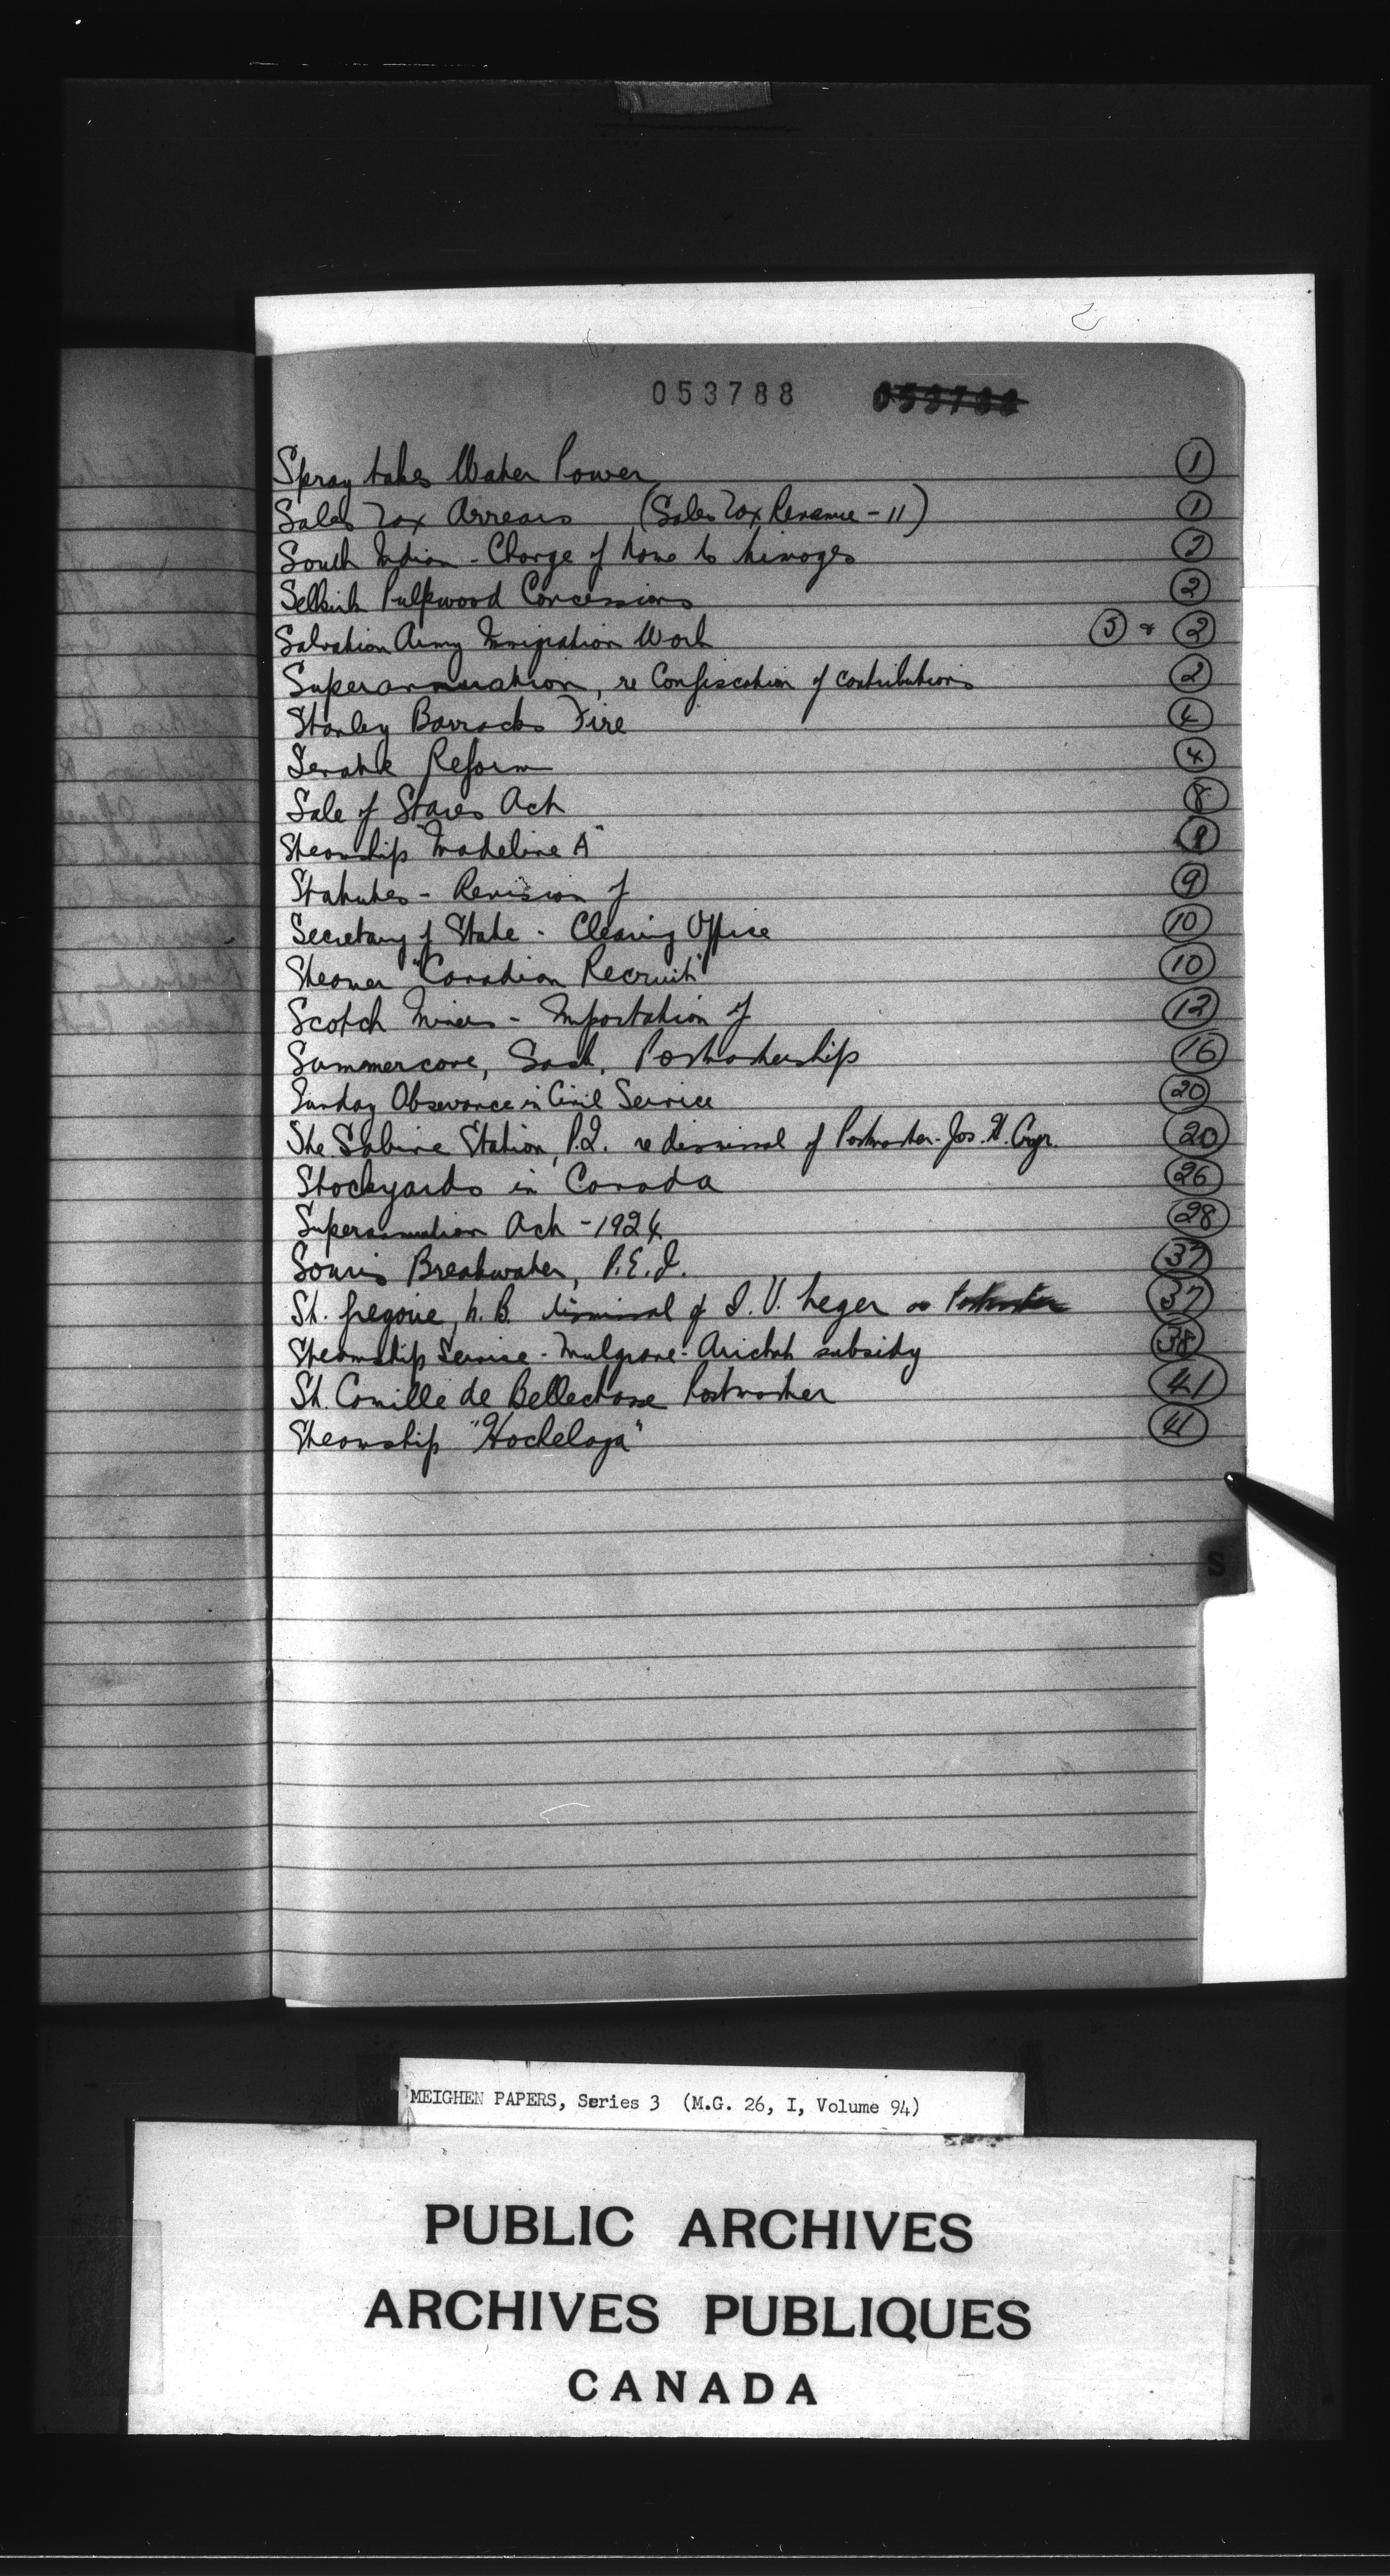 053788 053788
Spray Lakes Water Power 1
Sales Tax Arrears (Sales Tax Revenue - 11) 1
South Indian - Change of Name to Limoges 2
Selkirk Pulpwood Concessions 2
Salvation Army Immigration Work 5 & 2
Superannuation, re Confiscation of contributions 2
Stanley Barracks Fire 4
Senate Reform 4
Sale of Stares Act 8
Steamship "Madeline A" 9
Statutes - Revision of 9
Secretary of State - Clearing Office 10
Steamer "Canadian Recruit" 10
Scotch Miners - Importation of 12
Summercove, Sask. Postmastership 16
Sunday Observance in Civil Service 20
Ste Sabine Station, P.Q. re dismissal of Postmaster - Jos. H. 20
Stockyards in Canada 26
Superannuation Act - 1924 28
Souris Breakwater, P.E.I. 37
St. Gregoire, N.B. dismissal of J. V. Leger as Postmaster 37
Steamship Service - Mulgrave - Arichat subsidy 38
St. Camille de Bellechasse Postmaster 41
Steamship "Hochelaga" 41
S
MEIGHEN PAPERS, Series 3 (M.G. 26, I, Volume 94)
PUBLIC ARCHIVES
ARCHIVES PUBLIQUES
CANADA